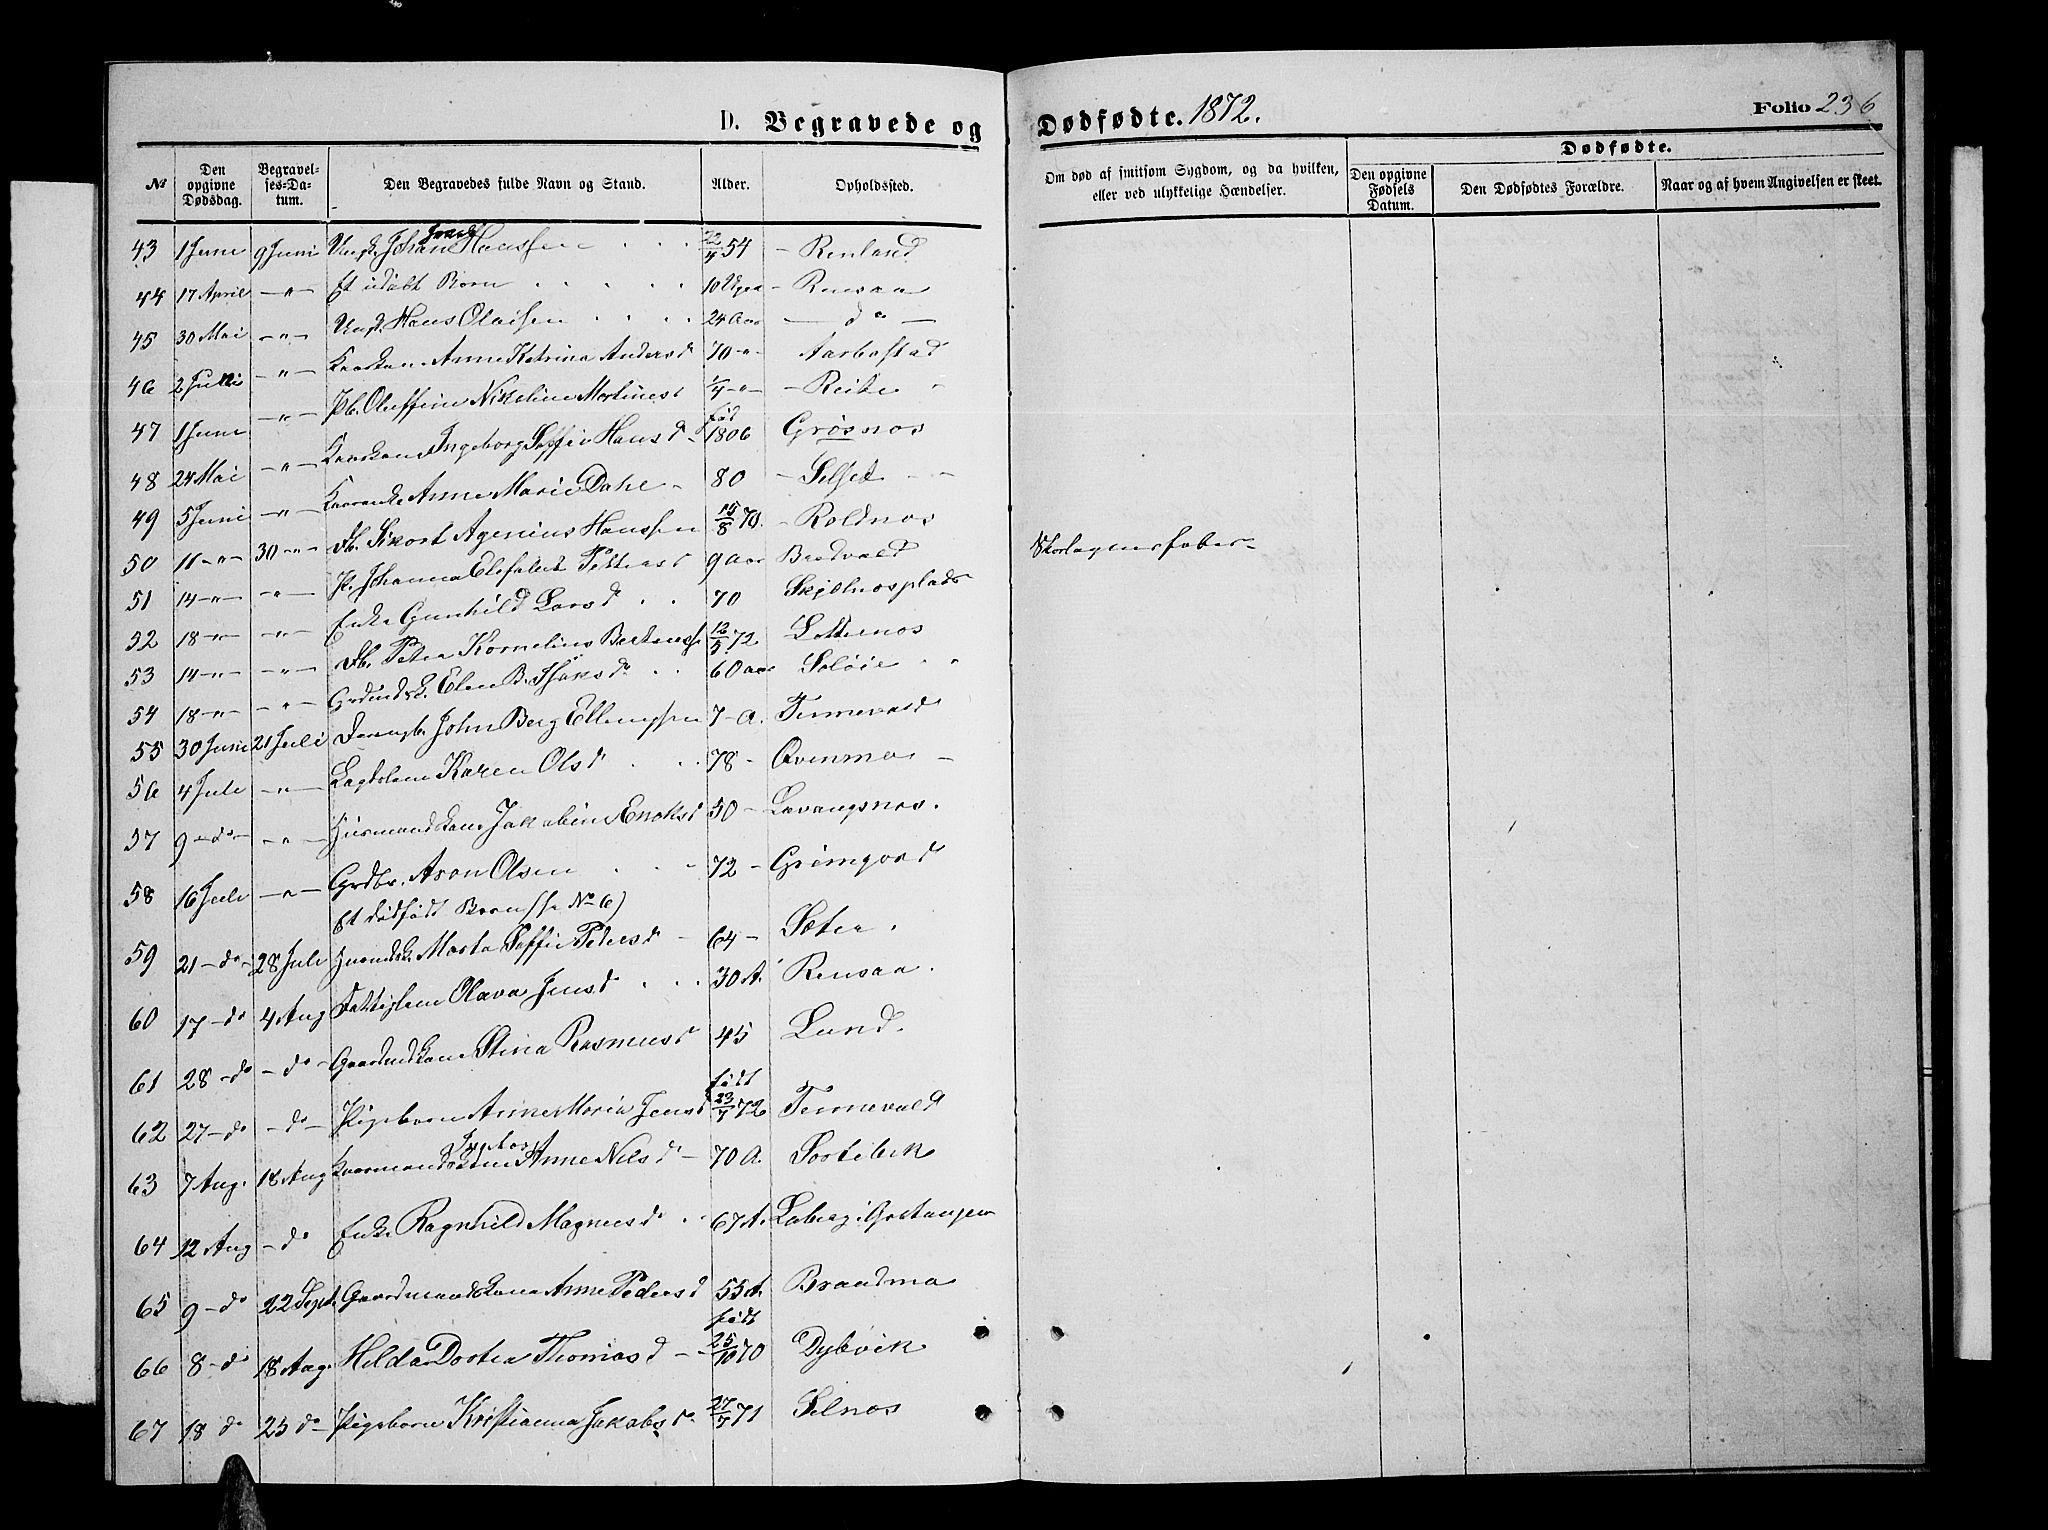 D. Begravede og Dødfødte. 1872.
Folio 236
Dødfødte.
№ | Den opgivne Dødsdag. | Begravelses-Datum. | Den Begravedes fulde Navn og Stand. | Alder. | Opholdssted. | Om død af smitsom Sygdom, og da hvilken, eller ved ulykkelige Hændelser. | Den opgivne Fødsels Datum. | Den Dødfødtes Forældre. | Naar og af hvem Angivelsen er skeet.
43 1 Juni 9 Juni Ungk. Johan Hanssen 54 - Renland
44 17 April -"- Et udøbt Barn 10 Uger - Rensaa
45 30 Mai -"- Ungk. Hans Olaisen 24 Aar - do -
46 2 Juni -"- Kaarkone Anne Katrina Andersd 70 -"- Aarbostad
47 1 Juni -"- Pb. Oluffine Nikoline Martinesd 1/4 -"- Reite
48 24 Mai -"- Kaarkone Ingeborg Soffie Hansd. født 1806 Grøsnes
49 5 Juni -"- Kaarenke Anne Marie Dahl - 80 - Selset
50 11 -"- 30 -"- Db. Sikort Agenius Hanssen 15/8 70. - Roldnæs
51 14 -"- -"- P. Johanna Elesabet Pettersd 9 Aar Bredvald Skarlagensfeber
52 18 -"- -"- Enke Gunhild Larsd. 70 Skjelnesplads
53 14 -"- -"- Db. Peter Kornelius 12/5 72. Lotternes
54 18 -"- -"- Grdmdsk. Elen B. Isaksd. 60 Aar Soløie
55 30 Juni 21 Juli Drengb. John Berg Ellingsen 7 - A. Tennevald
56 4 Juli -"- Lægdslem Karen Olsd 78 - Qvenmo
57 9 - do - -"- Husmandskone Jakobine Enoksd 50 - Lavangsnes.
58 16 Juli -"- Grdbr. Aron Olsen 72 - Grimgord
Et dødfødt Barn (se No 6)
59 21 - do - 28 Juli Husmdsk. Marta Soffie Pedersd - 64 - Sæter
60 17 - do 4 Aug Fattiglem Olava Jensd 30 A. Rensaa.
61 28 - do - do - Gaardmdskone Stina Rasmusd 45 Lund.
62 27 - do - do - Pigebarn Anne Maria Jensd født 23/7 72 Tennevald
63 7 Aug. 18 Aug Kaarmandskone Anne Nilsd - 70 A. Sørtebek
64 12 Aug - do Enke Ragnhild Magnusd 67 A. Laberg i Gratangen
65 9 - do 22 Sept. Gaardmandskone Anne Pedersd 55 A. Brandmo
66 8 - do 18 Aug. Hilda Dortea Thomasd - født 25/10 70 Dybvik
67 18 do 25 do - Pigebarn Kristianna Jakobsd. 27/7 71 Selnes